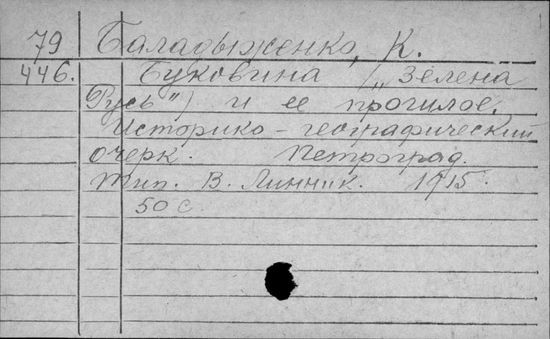 79 Баладыженко, К.
446. Буковина ("Зелена
Русь") и ее прошлое.
Историко-географический
очерк. Петроград.
Тип. В. Линник. 1915.
50 с.